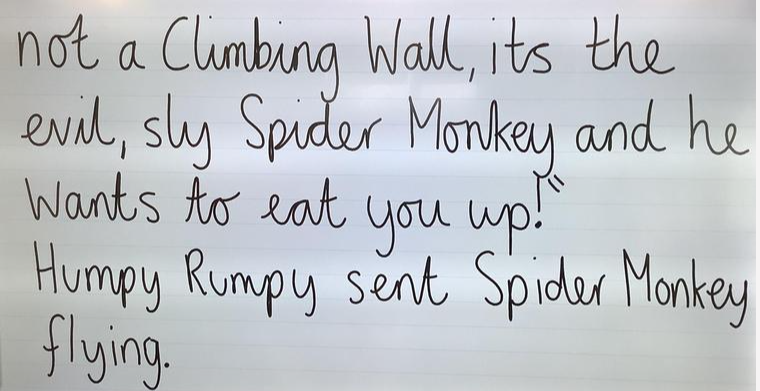 not a Climbing Wall, its the
evil, sly Spider Monkey and he
Wants to eat you up!"
Humpy Rumpy sent Spider Monkey
flying.